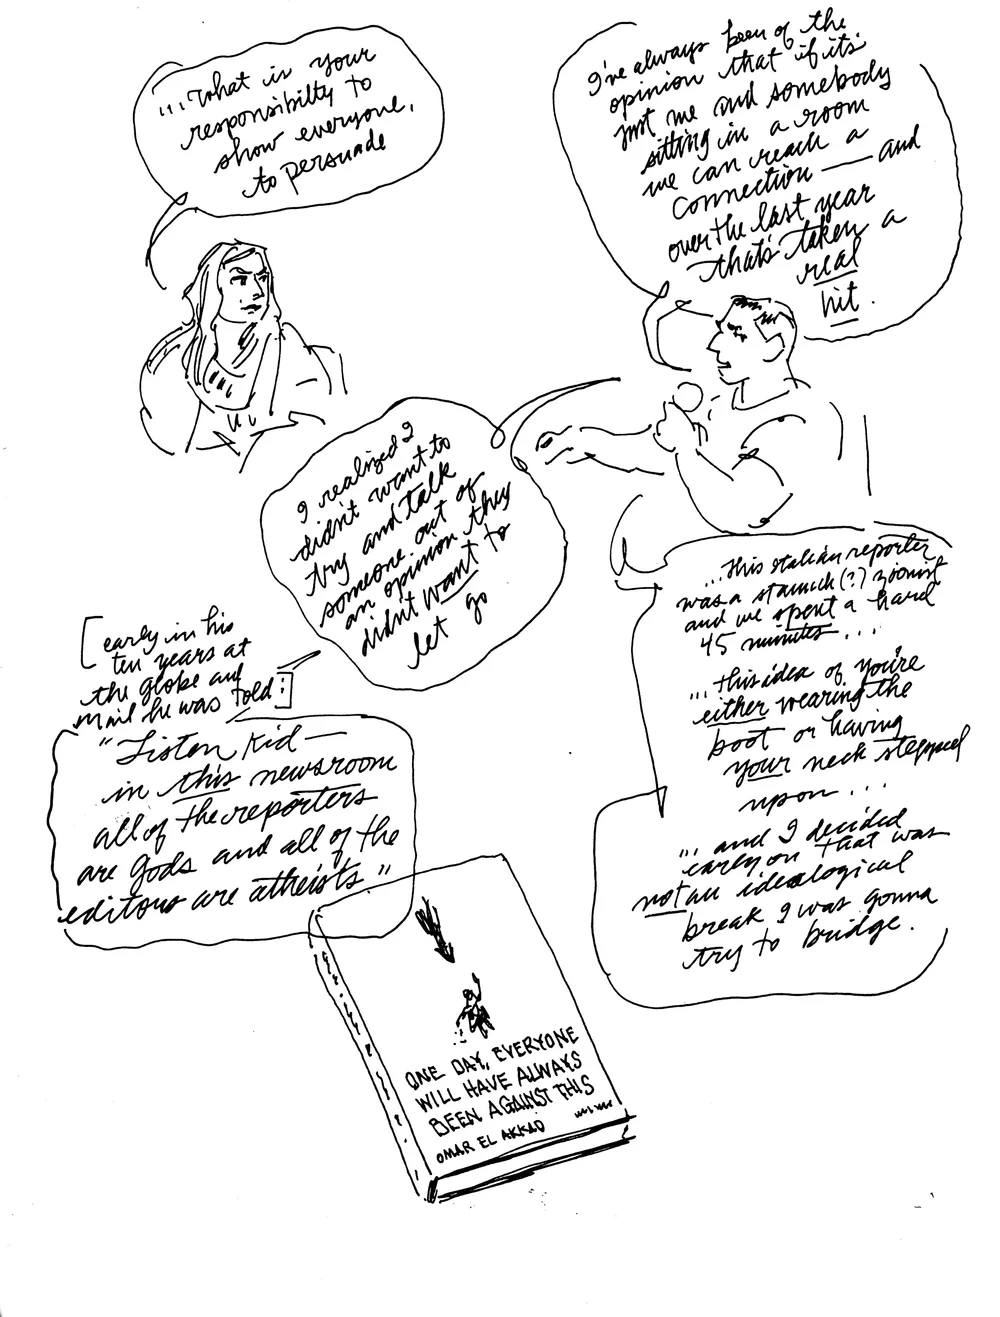 "... What is your
responsibilty to
show everyone,
to persuade
I've always been of the
opinion that if its
just me and somebody
sitting in a room
we can reach a
connection — and
over the last year
that's taken a
real
hit.
I realized I
didn't want to
try and talk
someone out of
an opinion they
didn't want to
let go
...this italian reporter
was a staunch (?) zionist
and we spent a hard
45 minutes...
...this idea of you're
either wearing the
boot or having
your neck stepped
upon...
"... and I decided
early on that was
not an idealogical
break I was gonna
try to bridge.
[early in his
ten years at
the globe and
mail he was told:]
"Listen Kid—
in this newsroom
all of the reporters
are Gods and all of the
editors are atheists."
ONE DAY, EVERYONE
WILL HAVE ALWAYS
BEEN AGAINST THIS
OMAR EL AKKAD